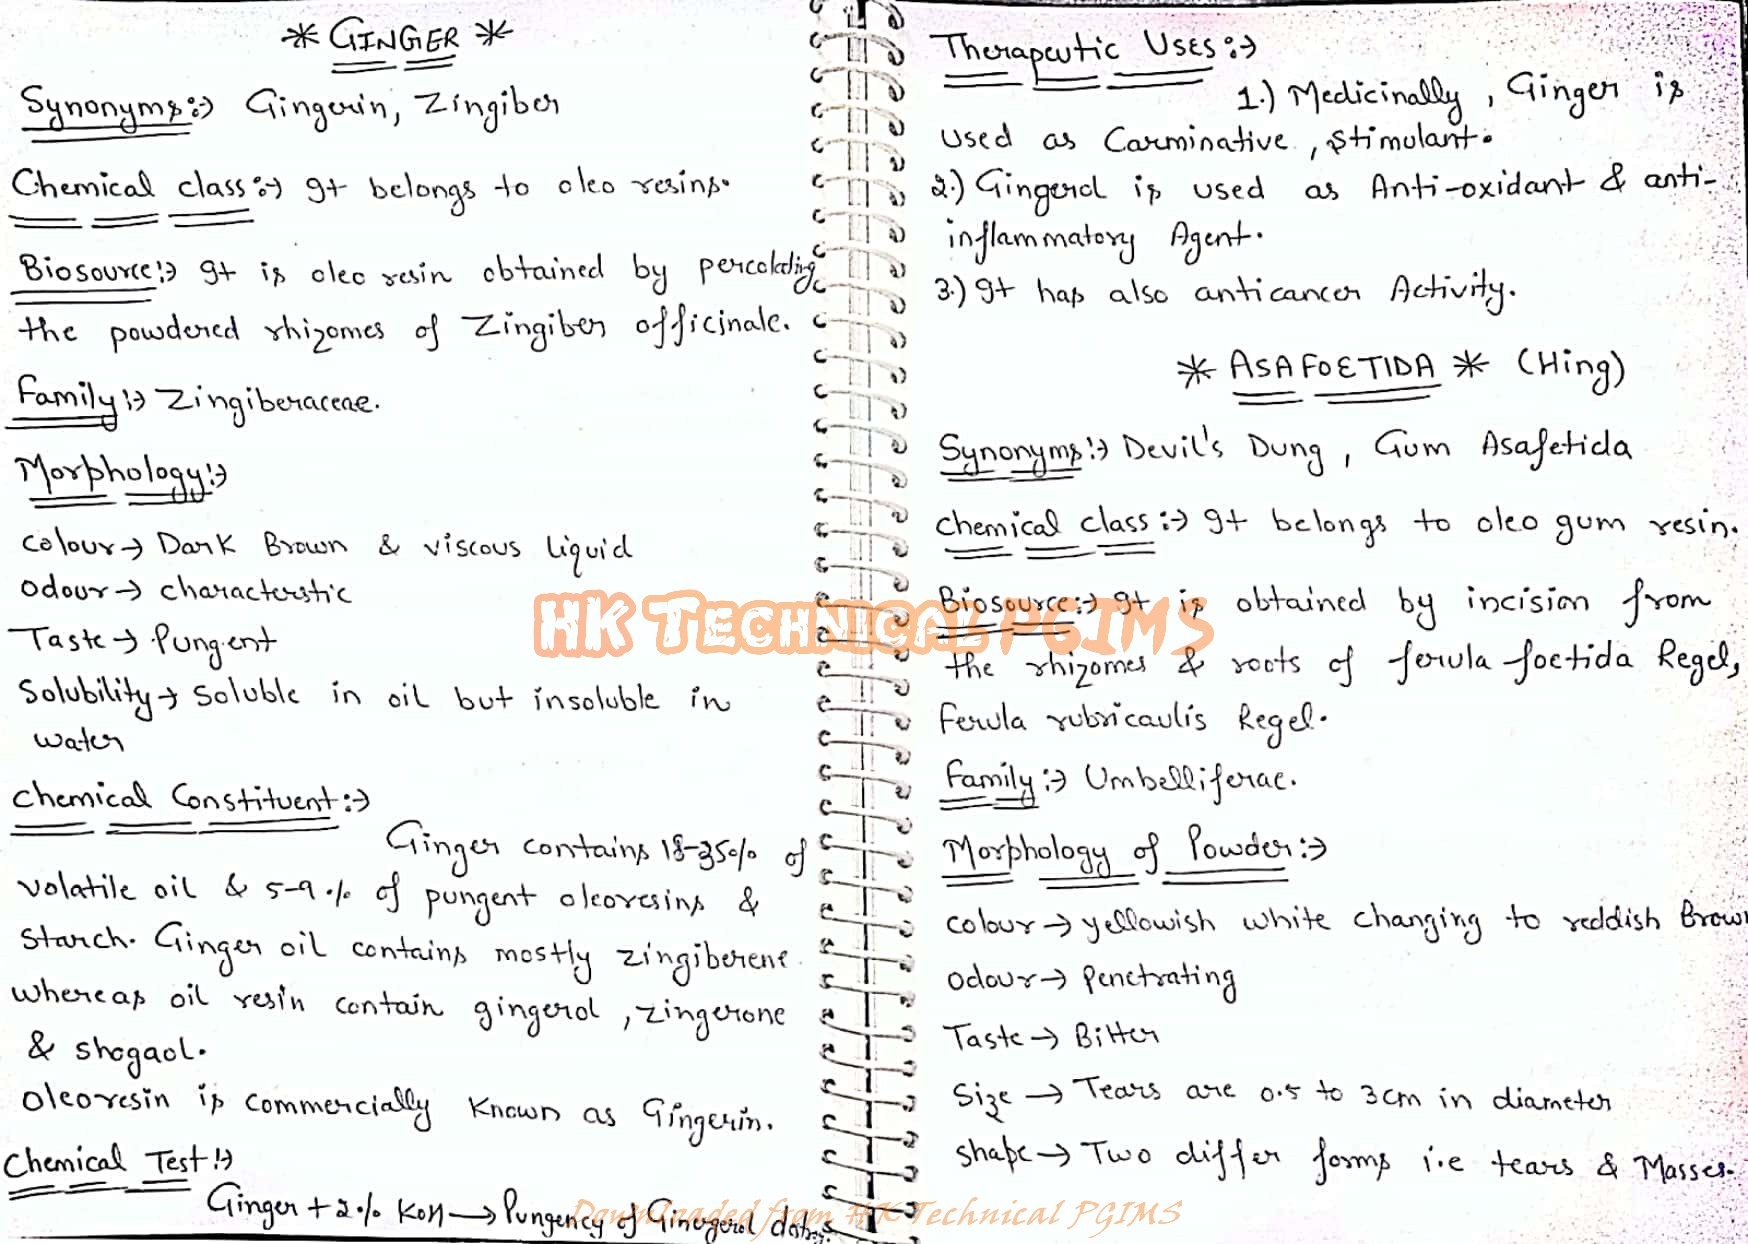 * GINGER *
Synonyms:→ Gingerin, Zingiber
Chemical class:→ It belongs to oleo resins.
Biosource:→ It is oleo resin obtained by percolating
the powdered rhizomes of Zingiber officinale.
Family:→ Zingiberaceae.
Morphology:→
Colour → Dark Brown & viscous liquid
Odour → characterstic
Taste → Pungent
Solubility → Soluble in oil but insoluble in
water
Chemical Constituent:→
Ginger contains 18-35% of
volatile oil & 5-9% of pungent oleoresins &
Starch. Ginger oil contains mostly zingiberene
whereas oil resin contain gingerol, zingerone
& shogaol.
Oleoresin is commercially known as Gingerin.
Chemical Test:→
Ginger + 2% KOH → Pungency of Gingerol
Therapeutic Uses:→
1.) Medicinally, Ginger is
used as Carminative, Stimulant.
2.) Gingerol is used as Anti-oxidant & anti-
inflammatory Agent.
3.) It has also anticancer Activity.
* ASAFOETIDA * (Hing)
Synonyms:→ Devil's Dung, Gum Asafetida
Chemical class:→ It belongs to oleo gum resin.
Biosource:→ It is obtained by incision from
the rhizomes & roots of ferula foetida Regel,
Ferula rubricaulis Regel.
Family:→ Umbelliferae.
Morphology of Powder:→
Colour → yellowish white changing to reddish Brown
Odour → Penetrating
Taste → Bitter
Size → Tears are 0.5 to 3cm in diameter
Shape → Two differ forms i.e tears & Masses.
HK TECHNICAL PGIMS
Downloaded from HK Technical PGIMS